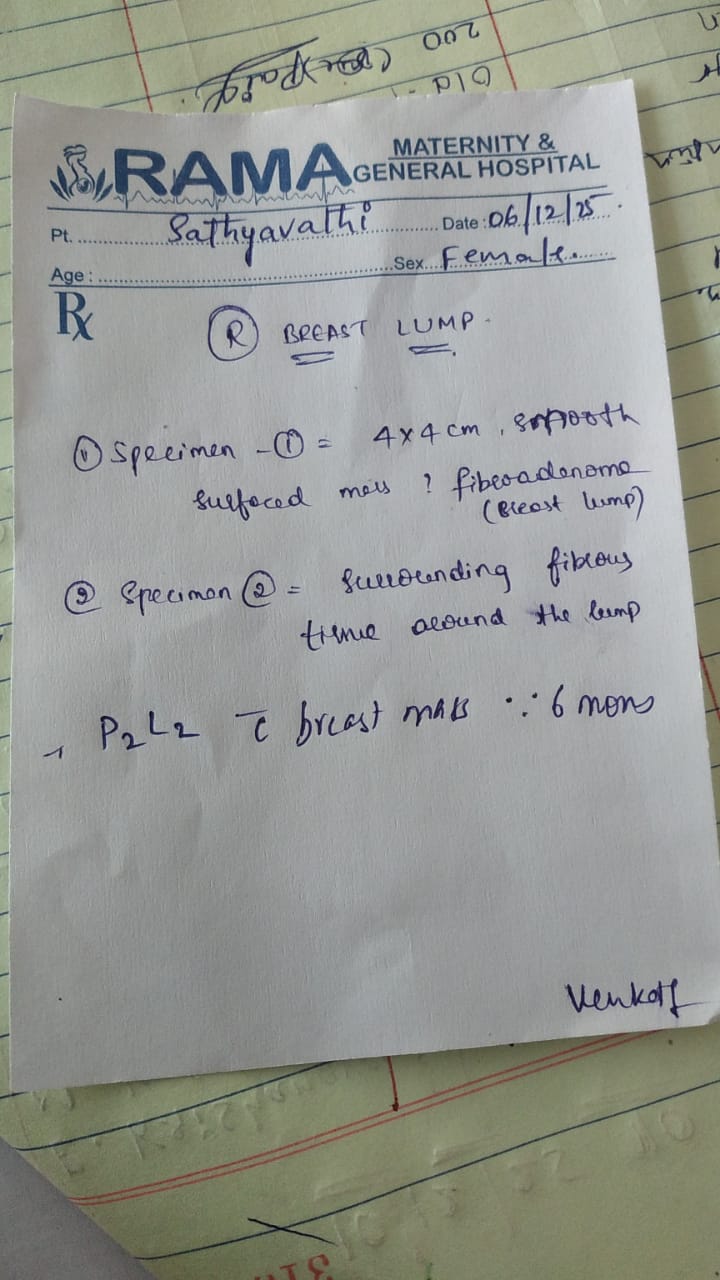 200
Old
RAMA MATERNITY &
GENERAL HOSPITAL
Pt. Sathyavathi Date : 06/12/25
Age : Sex Female
Rx
(R) BREAST LUMP
① Specimen - ① = 4x4 cm, smooth
surfaced mass ? fibroadenoma
(Breast lump)
② Specimen ② = surrounding fibrous
tissue around the lump
P2L2 c̄ breast mass ∵ 6 mons
Venkat